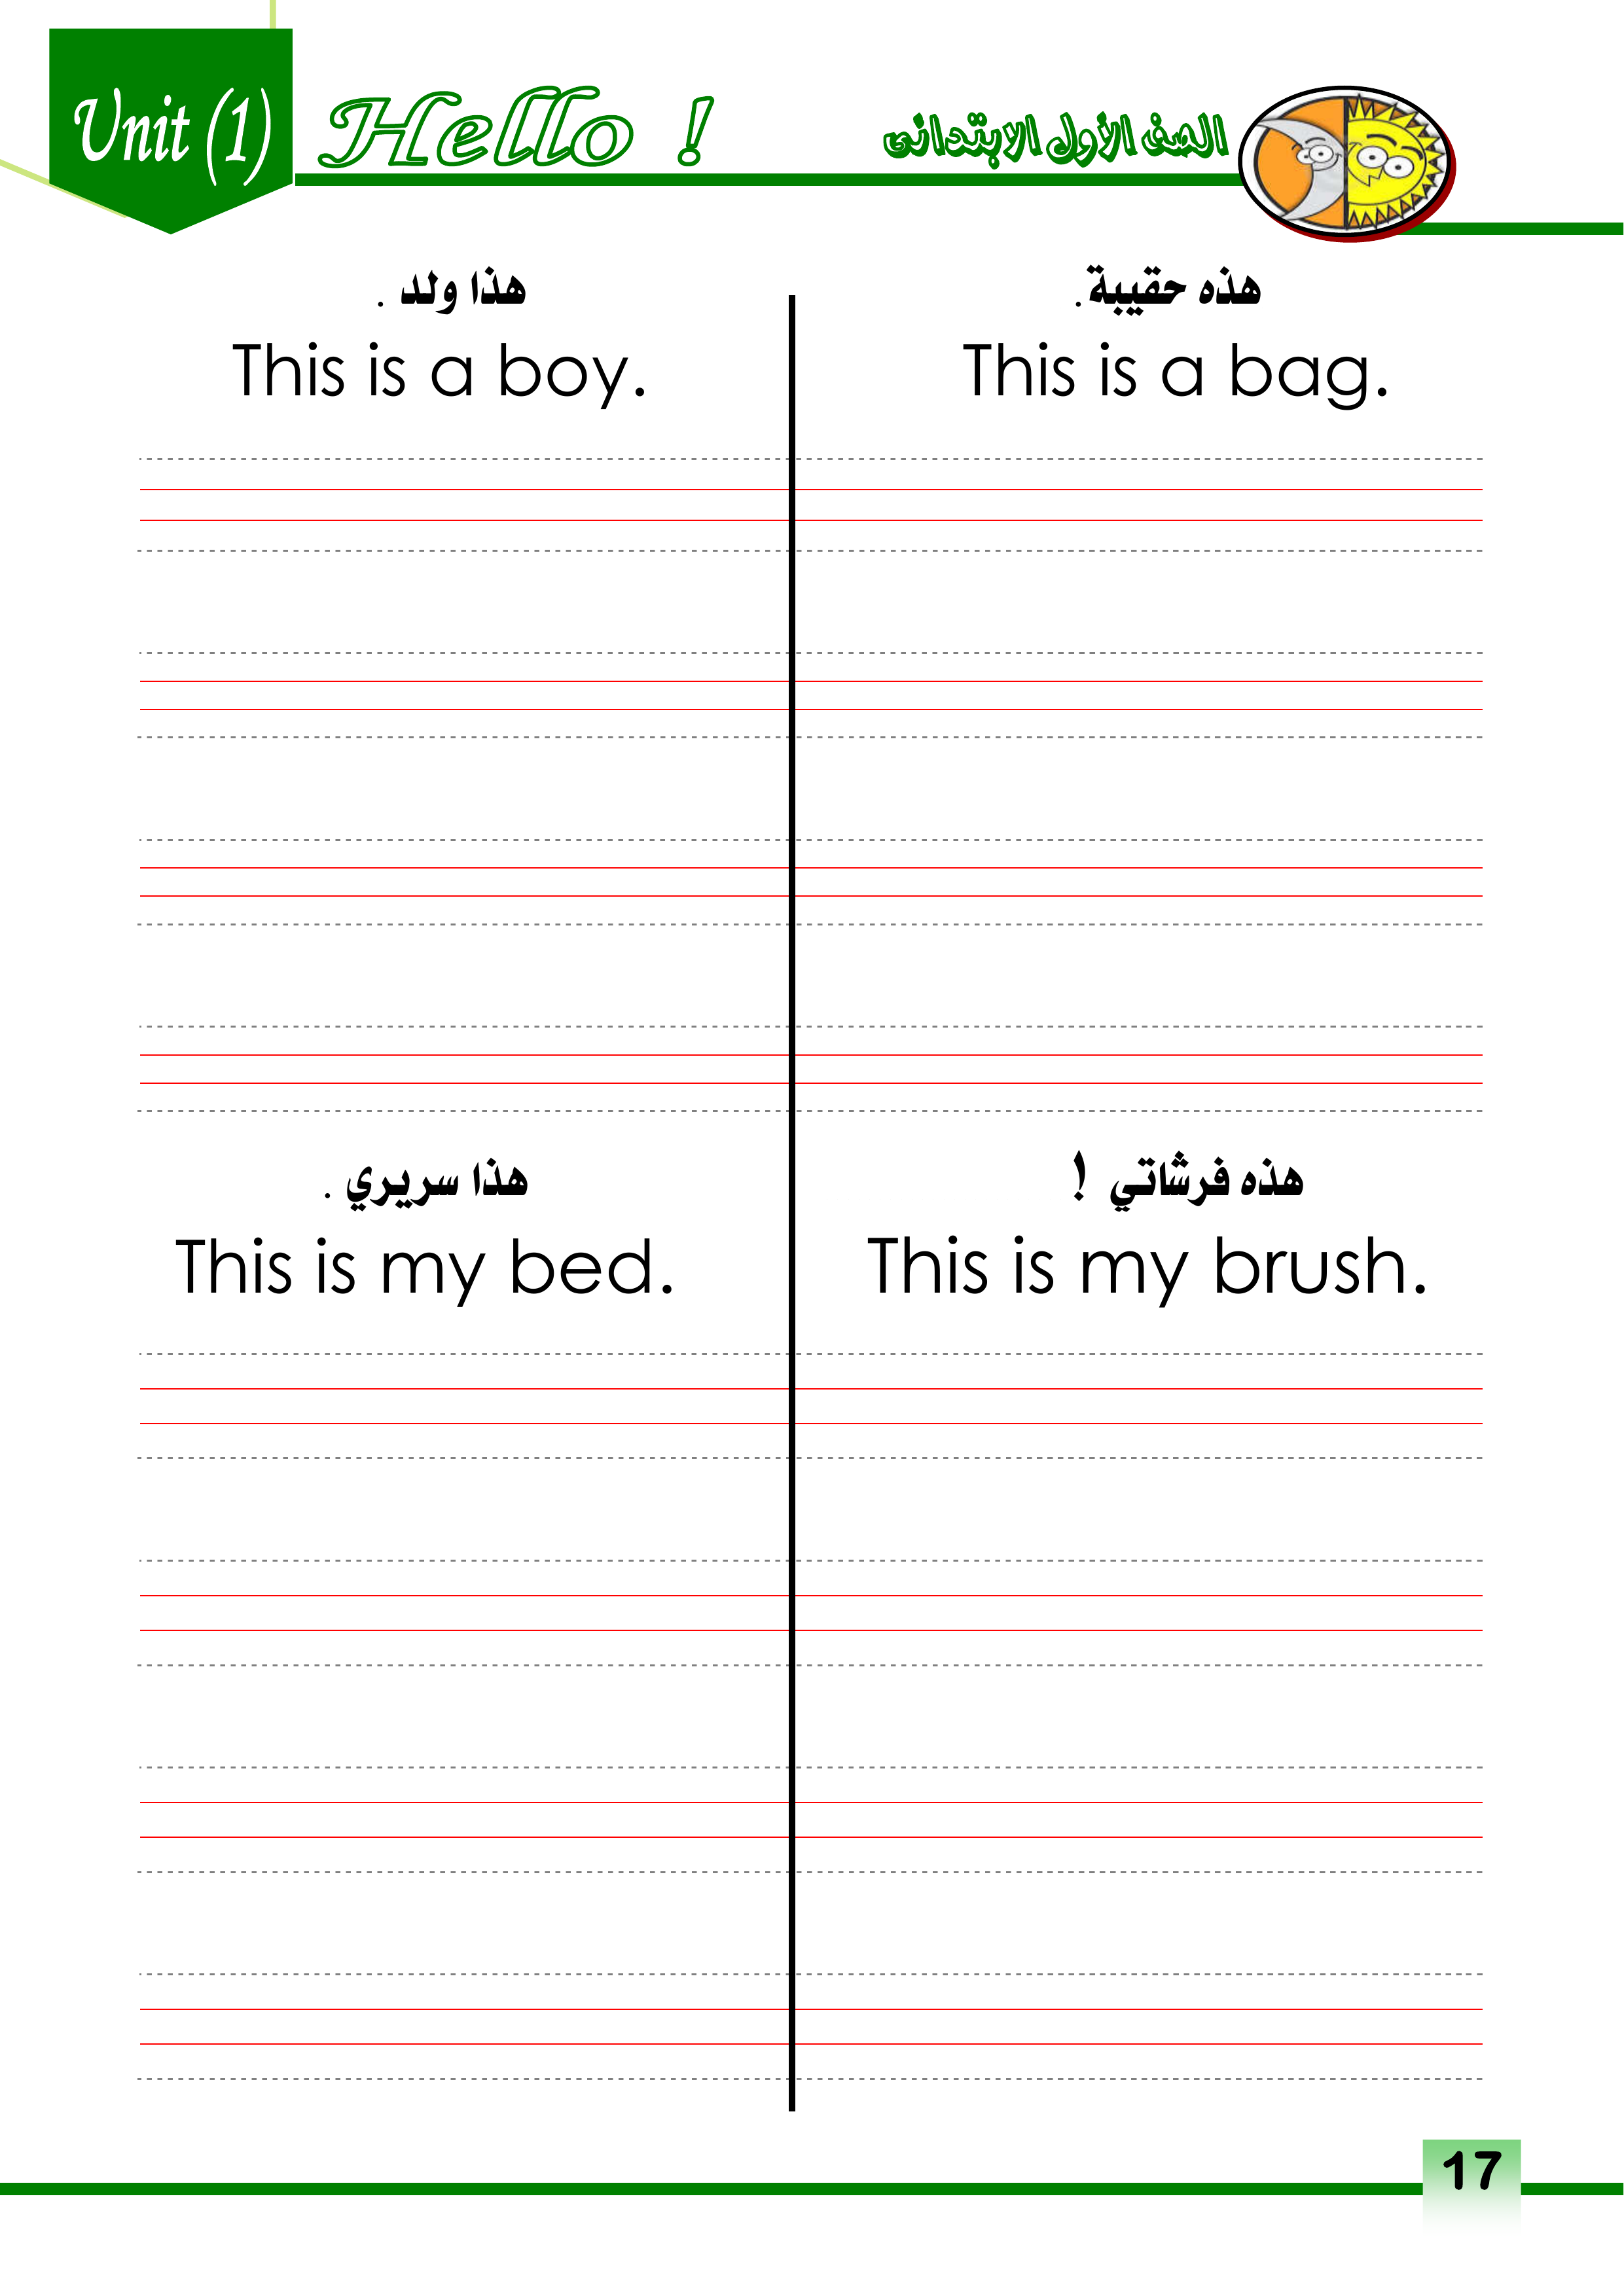 Unit (1)
Hello !
الصف الأول الابتدائى
هذا ولد .
This is a boy.
هذه حقيبة.
This is a bag.
هذا سريري .
This is my bed.
هذه فرشاتي !
This is my brush.
17